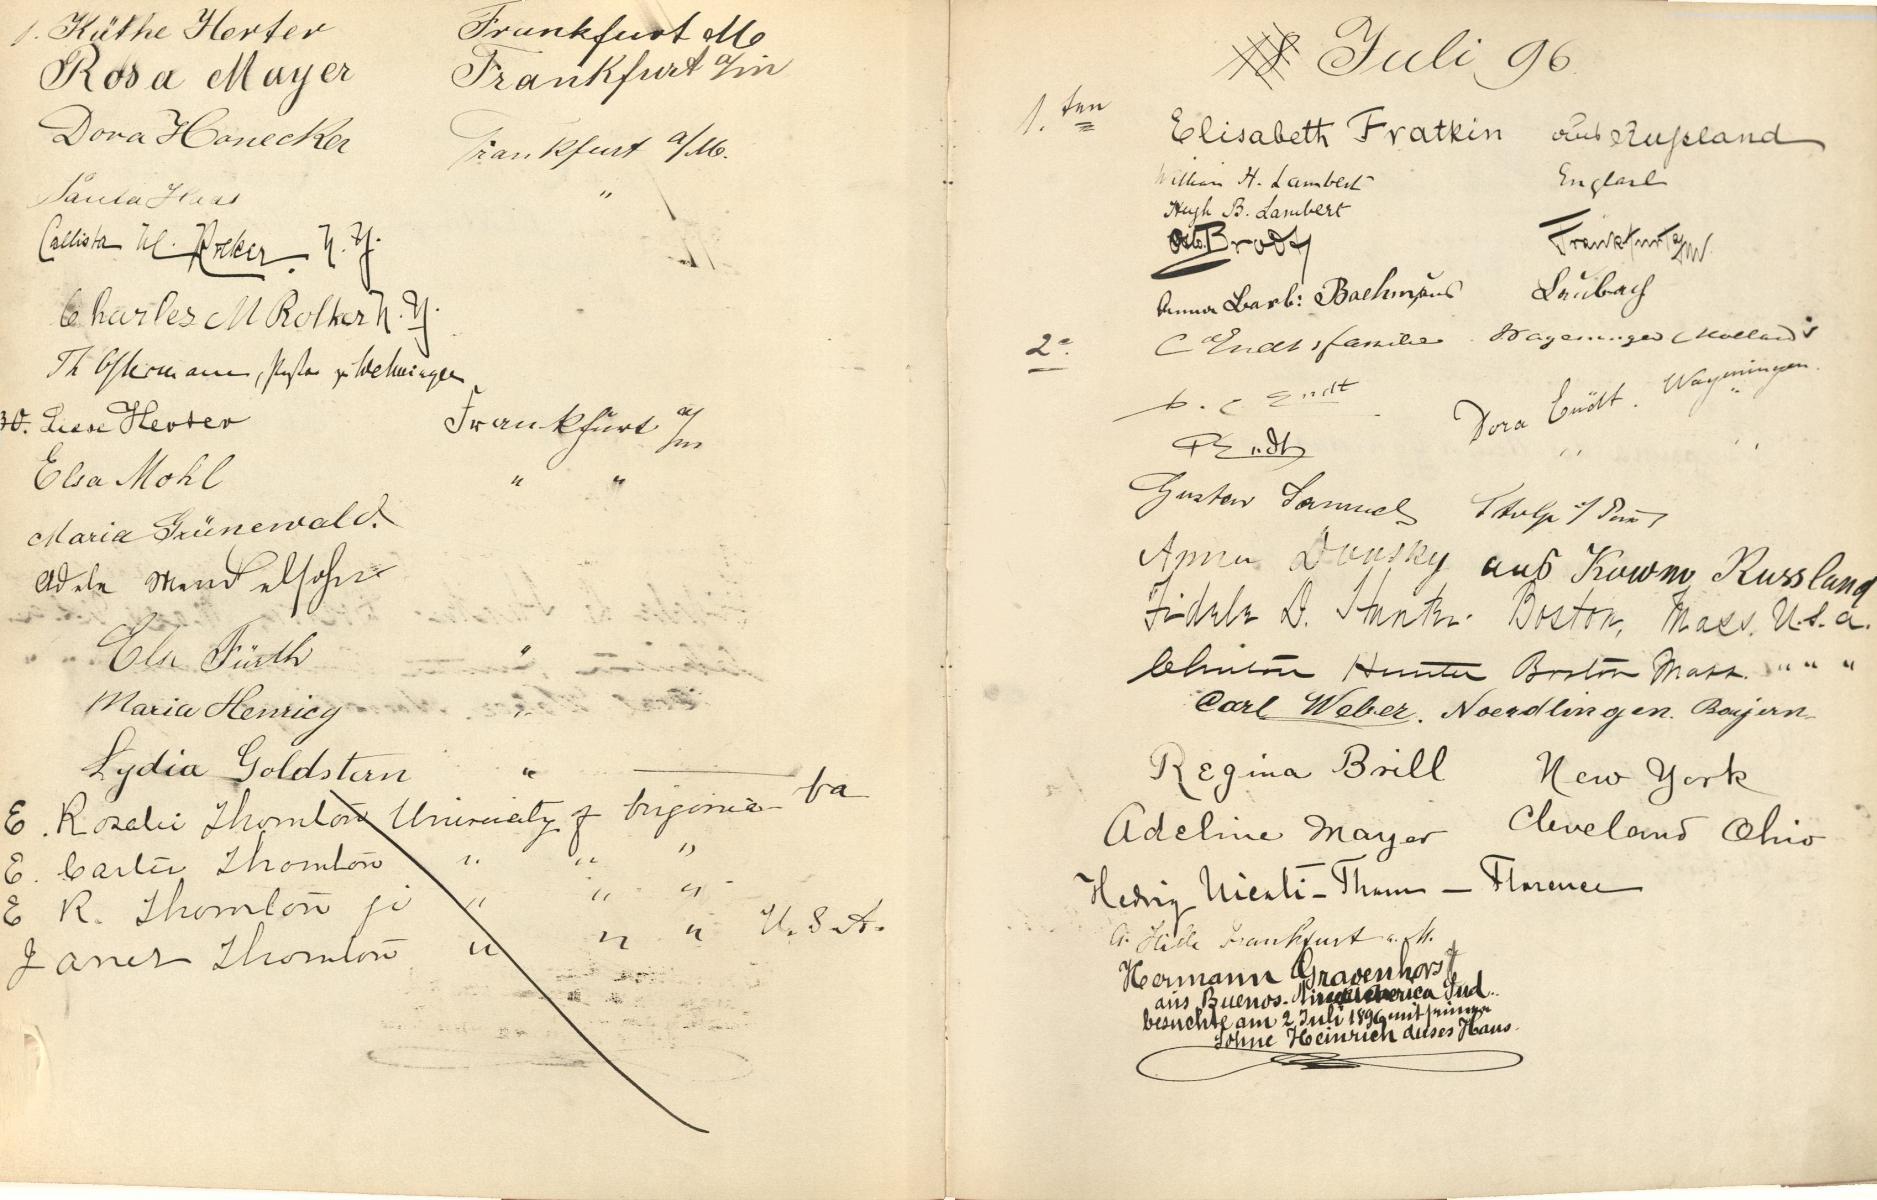 Käthe Herter Frankfurt M
Rosa Mayer Frankfurt a/m
Dora Honecker Frankfurt a/M.
Haas "
Callista M. Rolker. N. Y.
Charles M Rolker N. Y.
Th
30. Herter Frankfurt a/m
Elsa Mohl " "
Maria Grünewald.
Adele Mendelsohn
Else Fürth "
Maria Henrich "
Lydia Goldstern "
E. Rosalie Thornton University of Virginia Va
E. Carter Thornton " " "
E R. Thornton jr " " "
Janet Thornton " " " U. S. A.
Juli 96
1. ten
Elisabeth Fratkin aus Rußland
William H. Lambert England
Hugh B. Lambert
Brody Frankfurt a/M.
Anna Barb: Laubach
2e.
C Endt & familie Wageningen Holland
C Endt
Dora Endt. Wageningen
Endt " "
Gustav Samuel
Anna Donsky aus Kowno Russland
Fidele D. Hunter. Boston, Mass. U.S.A.
Clinton Hunter Boston Mass. " " "
Carl Weber. Noerdlingen. Bayern
Regina Brill New York
Adeline Mayer Cleveland Ohio
Hedwig - Florence
Frankfurt a. M.
Hermann Gravenhorst
aus Buenos- America Sud.
besuchte am 2 Juli 1896 mit seinem
Sohne Heinrich dieses Haus.